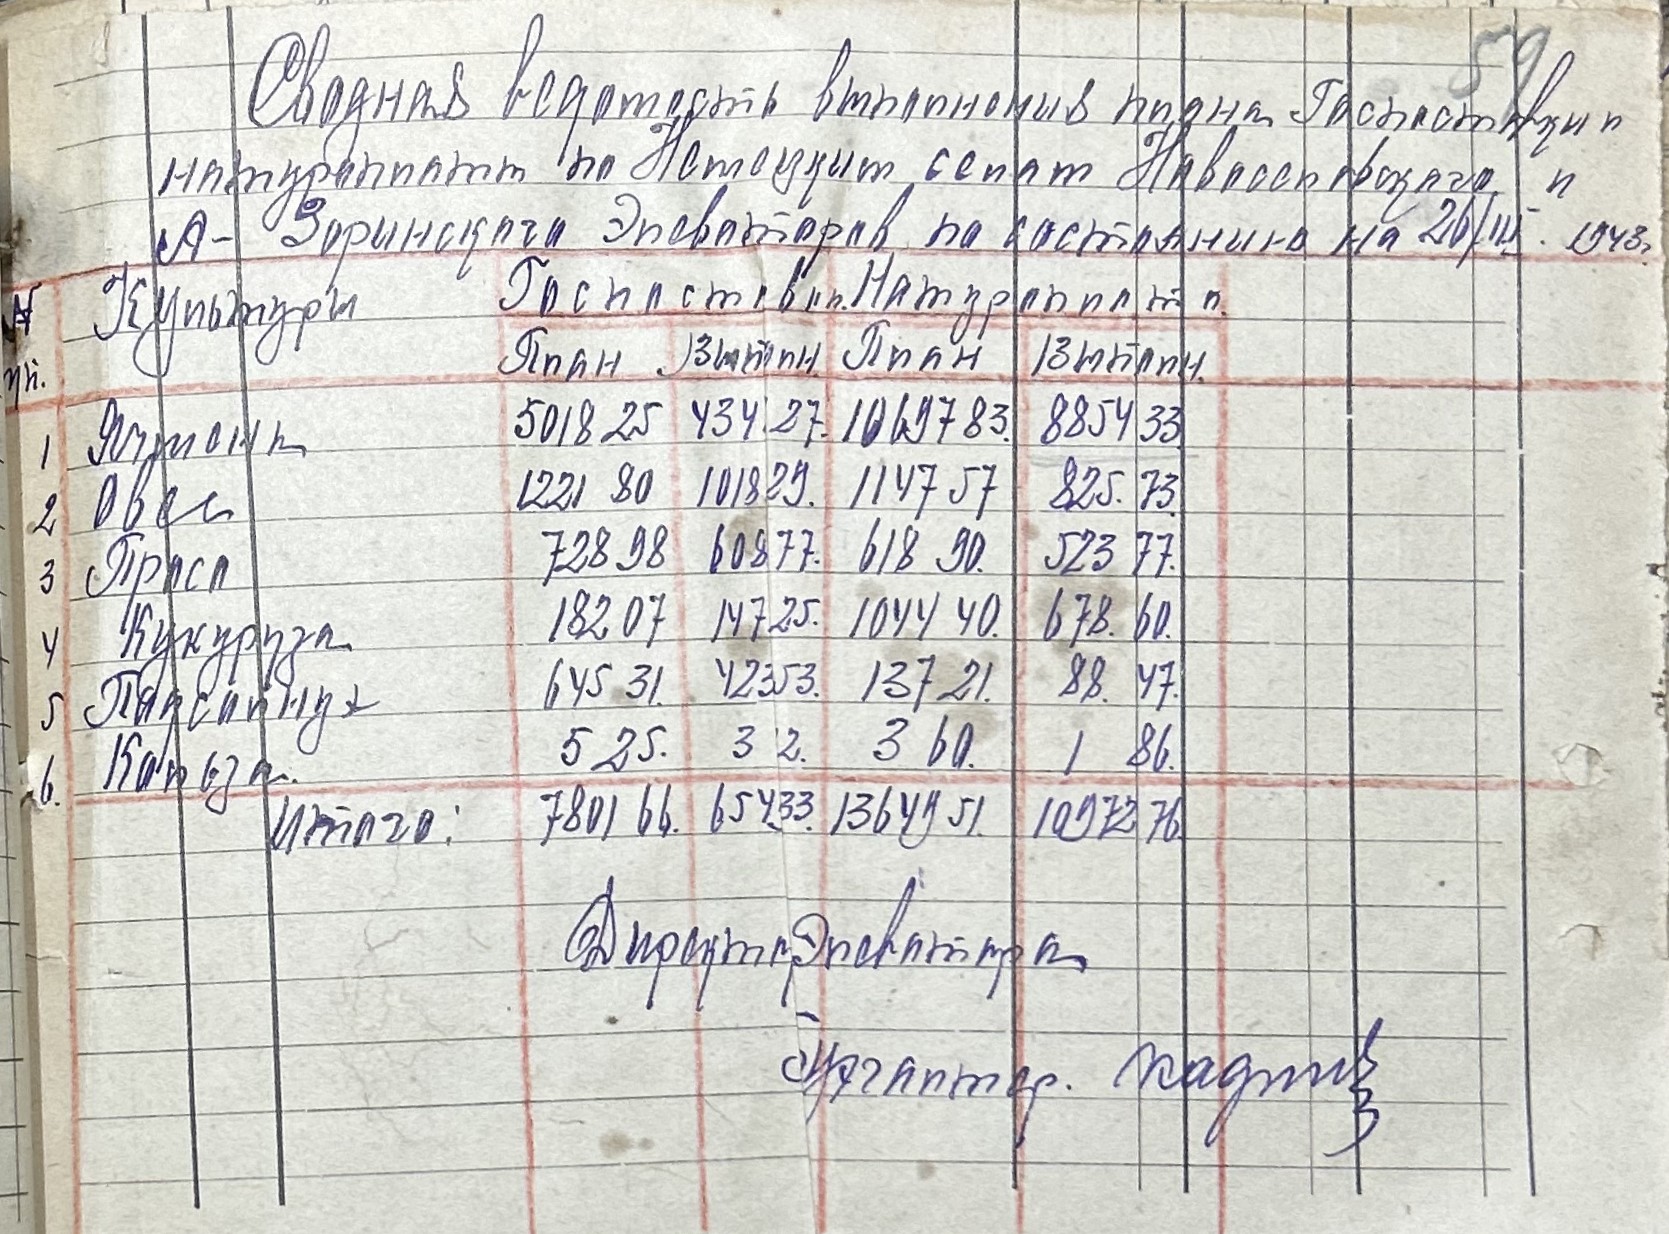 59
Сводная ведомость выполнения плана Госпоставки и
натуроплаты по сельхоз Новоселовского и
А- Зоринского Элеваторов по состоянию на 26/III. 1943.
№ пп. Культуры Госпоставки. Натуроплата.
План Выполн. План Выполн.
1 Ячмень 5018 25 434. 27. 10697 83. 8854 33
2 Овес 1221 80 1018 29. 1147 57 825. 73.
3 Просо 728 98 608 77. 618 90. 523 77.
4 Кукуруза 182 07 147 25. 1044 40. 678. 60.
5 Подсолнух 645 31. 423 53. 137 21. 88. 47.
6. Кользо. 5 25. 3 2. 3 60. 1 86.
Итого: 7801 66. 654 33. 13649 51. 10972 76.
Директор Элеватора
Бухгалтер.